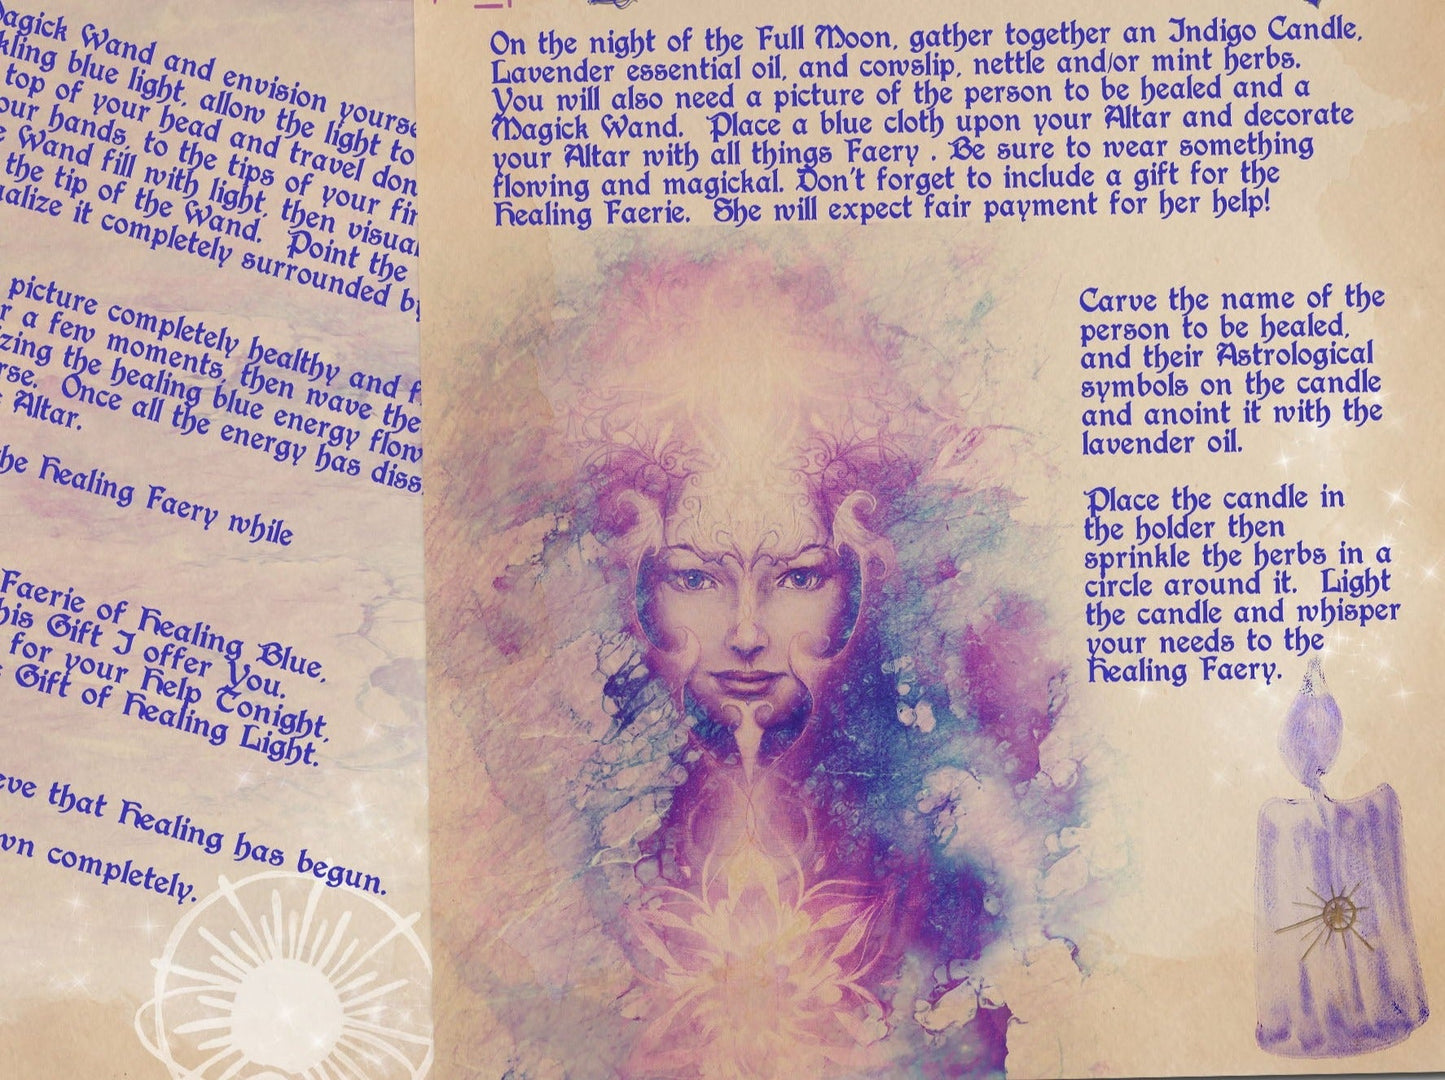 Magick Wand and envision
blue light, allow the light to
top of your head and travel
hands, to the tips of your
Wand fill with light, then
the tip of the Wand. Point the
it completely surrounded
picture completely healthy and
a few moments, then wave the
the healing blue energy
Once all the energy has
Altar.
the Healing Faery while
Faerie of Healing Blue,
this Gift I offer You.
for your Help Tonight,
Gift of Healing Light.
that Healing has begun.
completely.
On the night of the Full Moon, gather together an Indigo Candle,
Lavender essential oil, and cowslip, nettle and/or mint herbs.
You will also need a picture of the person to be healed and a
Magick Wand. Place a blue cloth upon your Altar and decorate
your Altar with all things Faery . Be sure to wear something
flowing and magickal. Don't forget to include a gift for the
Healing Faerie. She will expect fair payment for her help!
Carve the name of the
person to be healed,
and their Astrological
symbols on the candle
and anoint it with the
lavender oil.
Place the candle in
the holder then
sprinkle the herbs in a
circle around it. Light
the candle and whisper
your needs to the
Healing Faery.